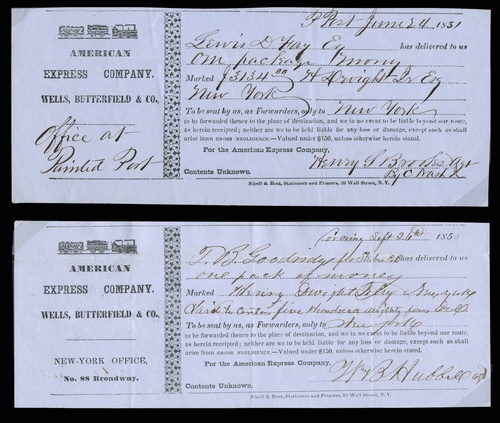 P. Post June 24 1851
AMERICAN
EXPRESS COMPANY.
WELLS, BUTTERFIELD & CO.,
Office at
Painted Post
Lewis D Fay Esq has delivered to us
One package money
Marked $5134 00 H Dwight Jr Esq
New York
To be sent by us, as Forwarders, only to New York
to be forwarded thence to the place of destination, and we in no event to be liable beyond our route,
as herein receipted; neither are we to be held liable for any loss or damage, except such as shall
arise from GROSS NEGLIGENCE.—Valued under $150, unless otherwise stated.
For the American Express Company,
Henry S Brooks Agt
Contents Unknown. By C Nash
Schell & Mott, Stationers and Printers, 29 Wall Street, N. Y.
Corning Sept 26th 185
AMERICAN
EXPRESS COMPANY.
WELLS, BUTTERFIELD & CO.,
NEW-YORK OFFICE,
No. 88 Broadway.
T. B. Goodrich has delivered to us
One pack of money
Marked Henry Dwight Jr
five Hundred
To be sent by us, as Forwarders, only to New York
to be forwarded thence to the place of destination, and we in no event to be liable beyond our route,
as herein receipted; neither are we to be held liable for any loss or damage, except such as shall
arise from GROSS NEGLIGENCE.—Valued under $150, unless otherwise stated.
For the American Express Company,
Wm B Hubbell
Contents Unknown.
Schell & Mott, Stationers and Printers, 29 Wall Street, N. Y.